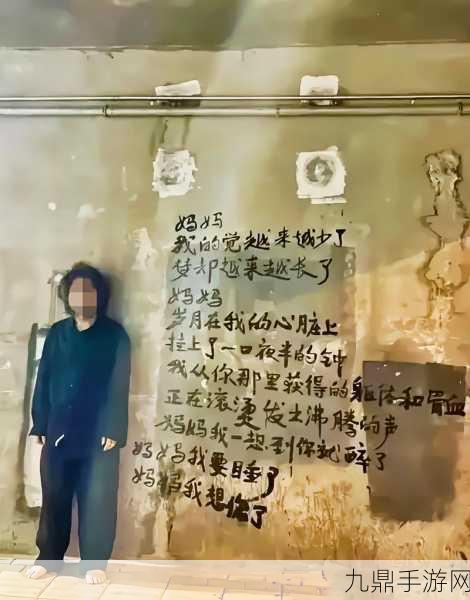 妈妈
我的觉越来越少了
梦却越来越长了
妈妈
岁月在我的心脏上
挂上了一口夜半的钟
我从你那里获得的躯体和骨血
正在滚烫发出沸腾的声
妈妈我一想到你就醉了
妈妈我要睡了
妈妈我想您了
九鼎手游网